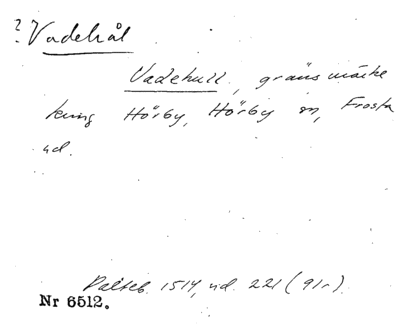 ? Vadehål
Vadehull, gränsmärke
kring Hörby, Hörby sn, Frosta
hd.
Palteb. 1514, nd. 221 (91r).
Nr 6512.